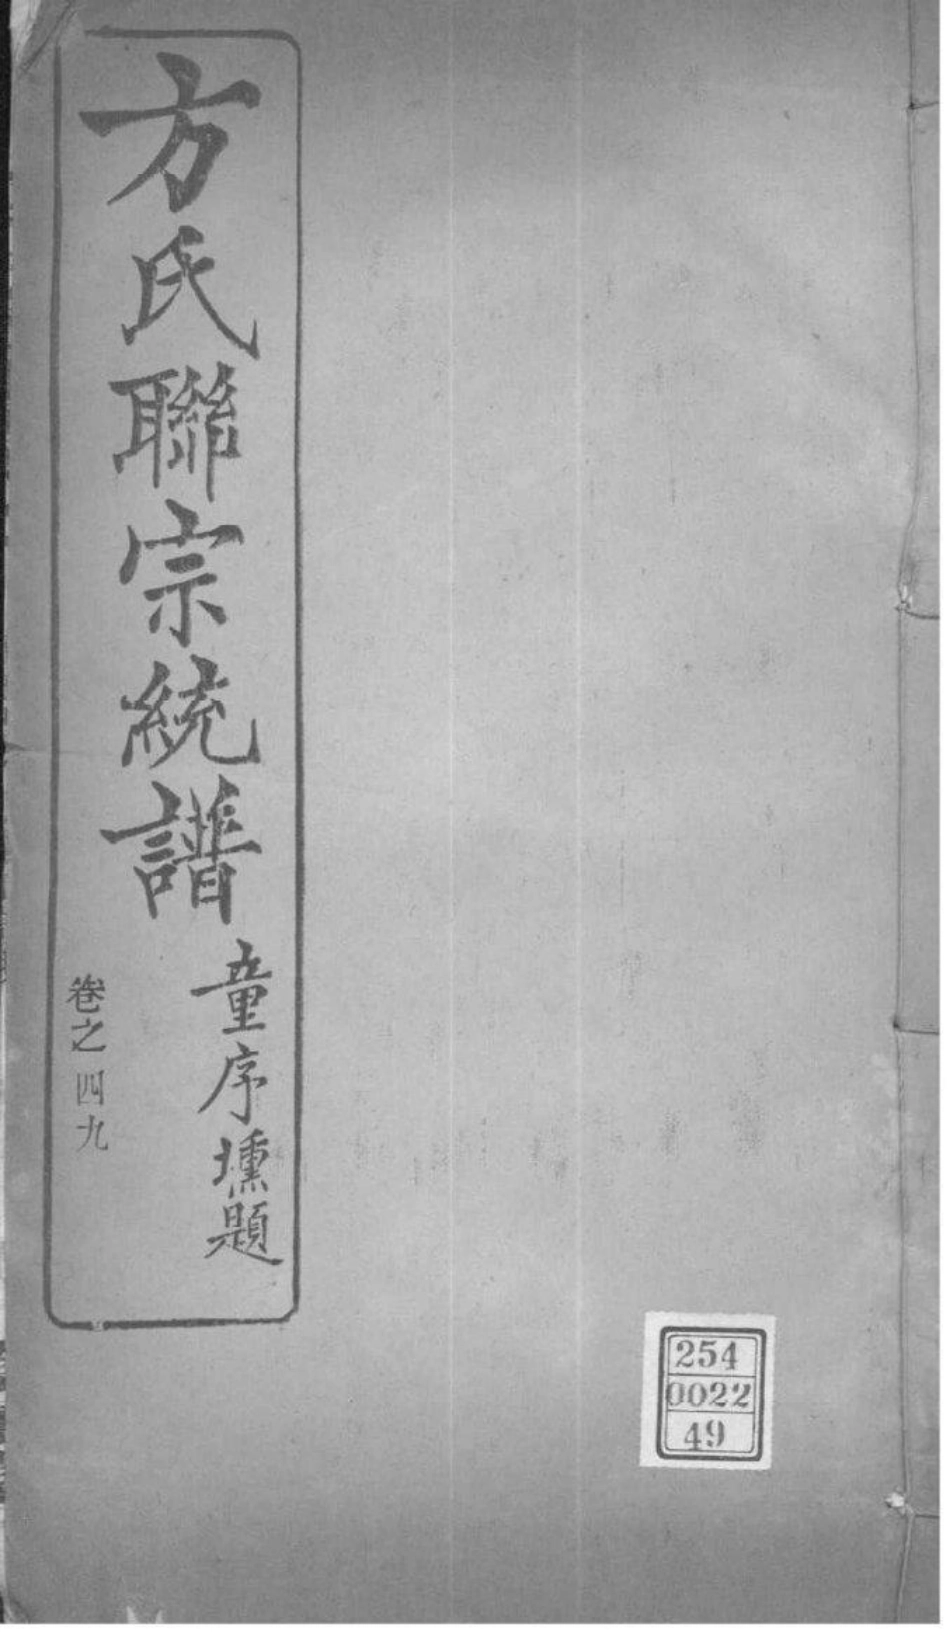 方氏聯宗統譜
童序壎題
卷之四九
254
0022
49